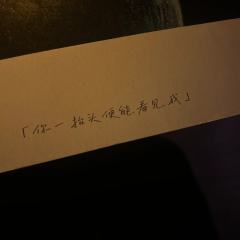 「你一抬头便能看见我」